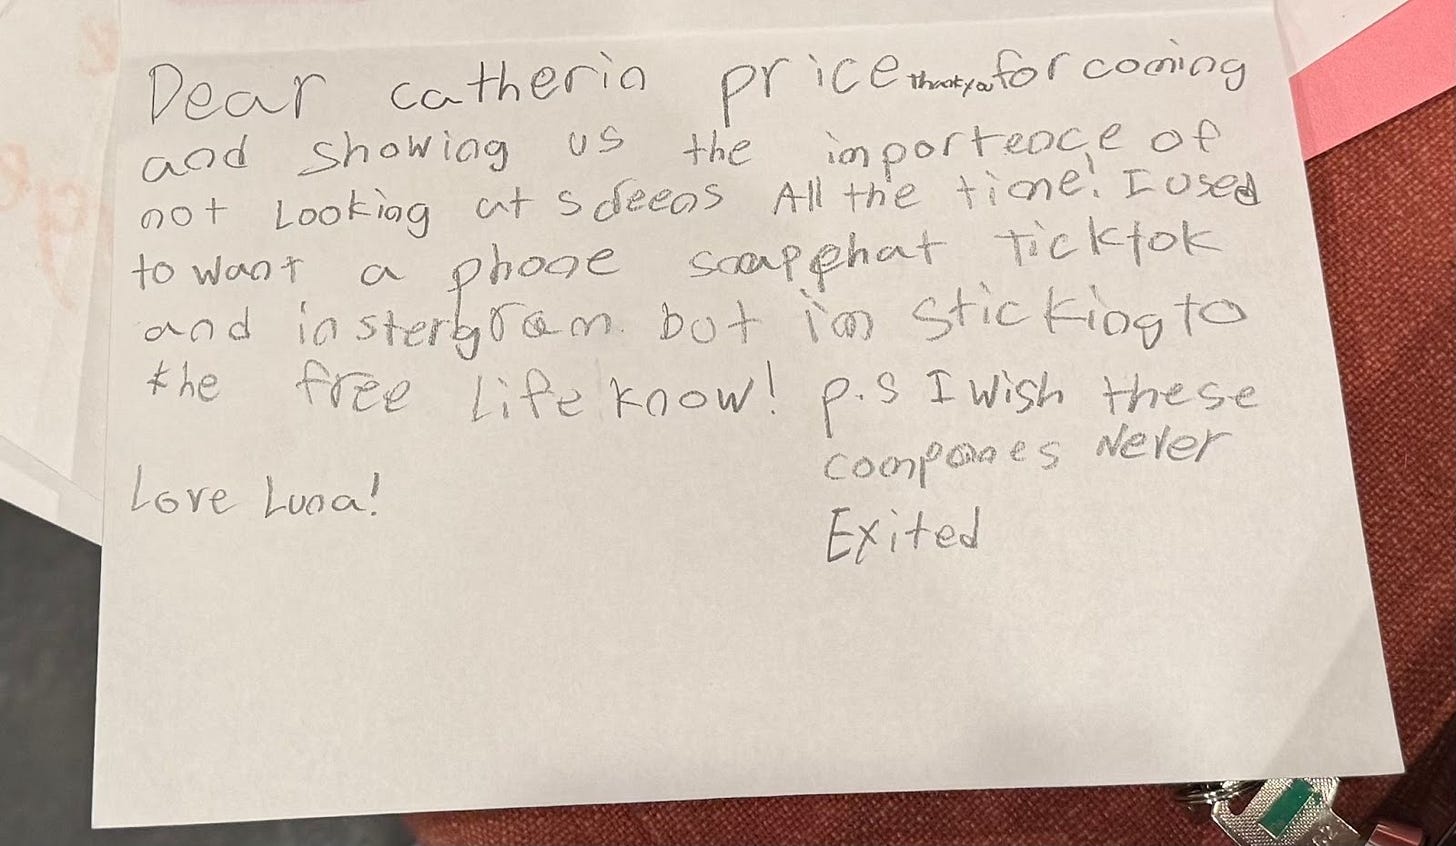 Dear catherin price thank you for coming
and showing us the importence of
not Looking at screens All the time! I used
to want a phone snapchat Ticktok
and instergram but im sticking to
the free Life know! p.s I wish these
companes Never
Exited
Love Luna!